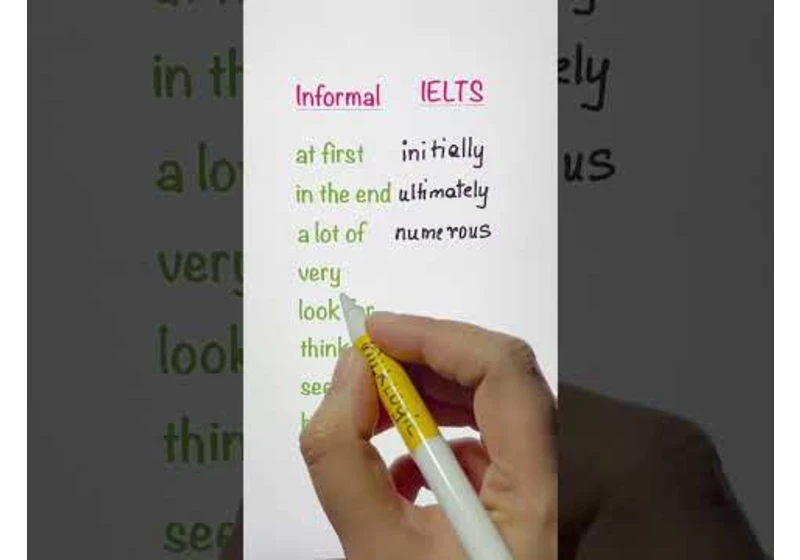 Informal IELTS
at first initially
in the end ultimately
a lot of numerous
very
look
think
see